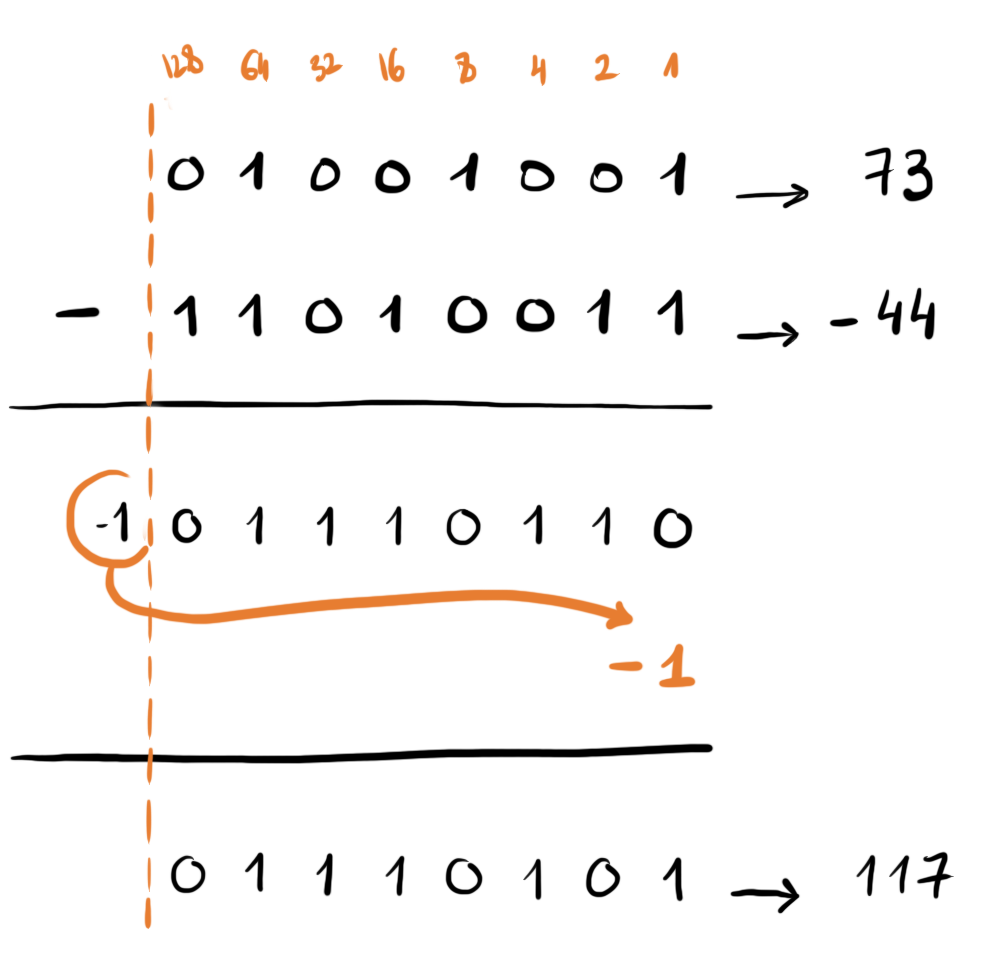 128 64 32 16 8 4 2 1
0 1 0 0 1 0 0 1 → 73
- 1 1 0 1 0 0 1 1 → - 44
-1 0 1 1 1 0 1 1 0
- 1
0 1 1 1 0 1 0 1 → 117